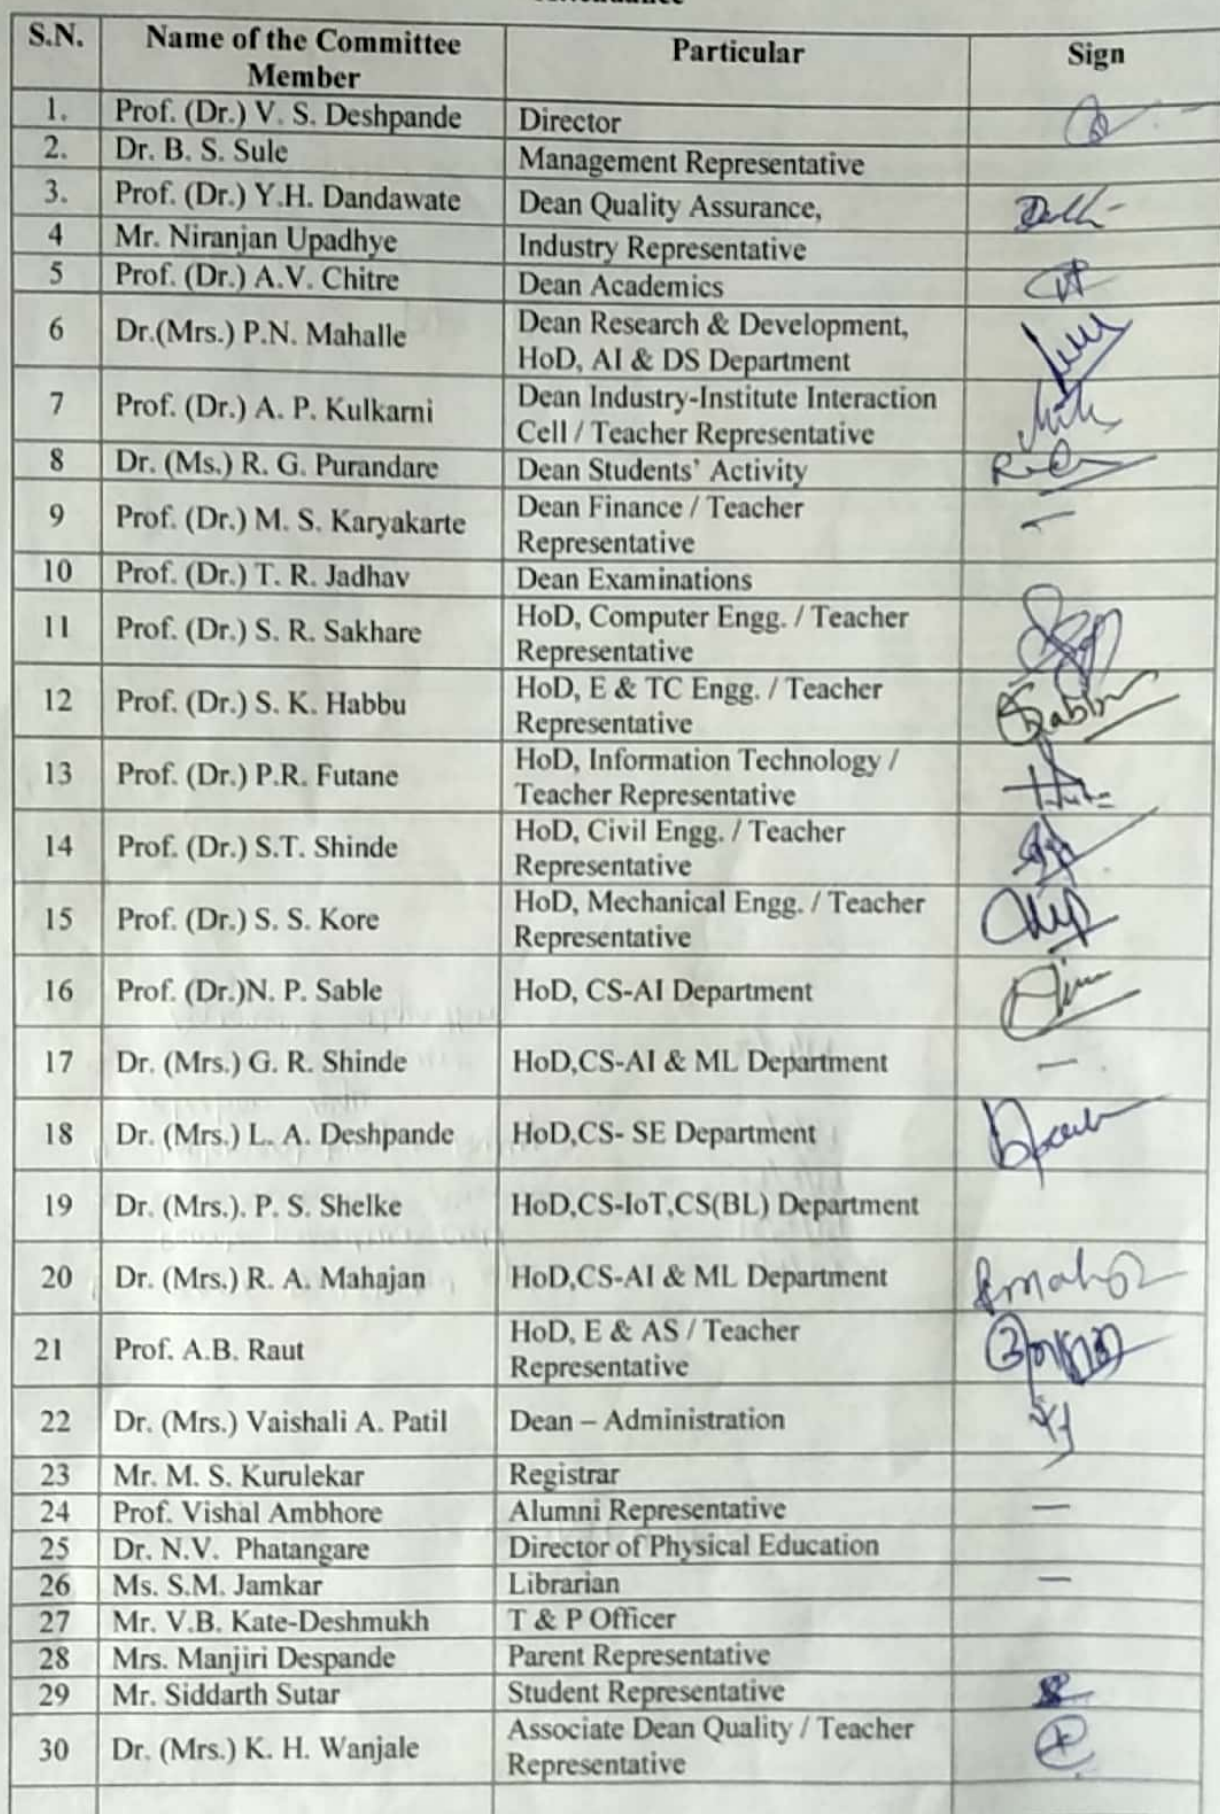 S.N. Name of the Committee Member Particular Sign
1. Prof. (Dr.) V. S. Deshpande Director
2. Dr. B. S. Sule Management Representative
3. Prof. (Dr.) Y.H. Dandawate Dean Quality Assurance,
4 Mr. Niranjan Upadhye Industry Representative
5 Prof. (Dr.) A.V. Chitre Dean Academics
6 Dr.(Mrs.) P.N. Mahalle Dean Research & Development,
HoD, AI & DS Department
7 Prof. (Dr.) A. P. Kulkarni Dean Industry-Institute Interaction
Cell / Teacher Representative
8 Dr. (Ms.) R. G. Purandare Dean Students' Activity
9 Prof. (Dr.) M. S. Karyakarte Dean Finance / Teacher
Representative
—
10 Prof. (Dr.) T. R. Jadhav Dean Examinations
11 Prof. (Dr.) S. R. Sakhare HoD, Computer Engg. / Teacher
Representative
12 Prof. (Dr.) S. K. Habbu HoD, E & TC Engg. / Teacher
Representative
13 Prof. (Dr.) P.R. Futane HoD, Information Technology /
Teacher Representative
14 Prof. (Dr.) S.T. Shinde HoD, Civil Engg. / Teacher
Representative
15 Prof. (Dr.) S. S. Kore HoD, Mechanical Engg. / Teacher
Representative
16 Prof. (Dr.)N. P. Sable HoD, CS-AI Department
17 Dr. (Mrs.) G. R. Shinde HoD,CS-AI & ML Department —
18 Dr. (Mrs.) L. A. Deshpande HoD,CS- SE Department
19 Dr. (Mrs.). P. S. Shelke HoD,CS-IoT,CS(BL) Department
20 Dr. (Mrs.) R. A. Mahajan HoD,CS-AI & ML Department
21 Prof. A.B. Raut HoD, E & AS / Teacher
Representative
22 Dr. (Mrs.) Vaishali A. Patil Dean – Administration
23 Mr. M. S. Kurulekar Registrar
24 Prof. Vishal Ambhore Alumni Representative —
25 Dr. N.V. Phatangare Director of Physical Education
26 Ms. S.M. Jamkar Librarian —
27 Mr. V.B. Kate-Deshmukh T & P Officer
28 Mrs. Manjiri Despande Parent Representative
29 Mr. Siddarth Sutar Student Representative
30 Dr. (Mrs.) K. H. Wanjale Associate Dean Quality / Teacher
Representative